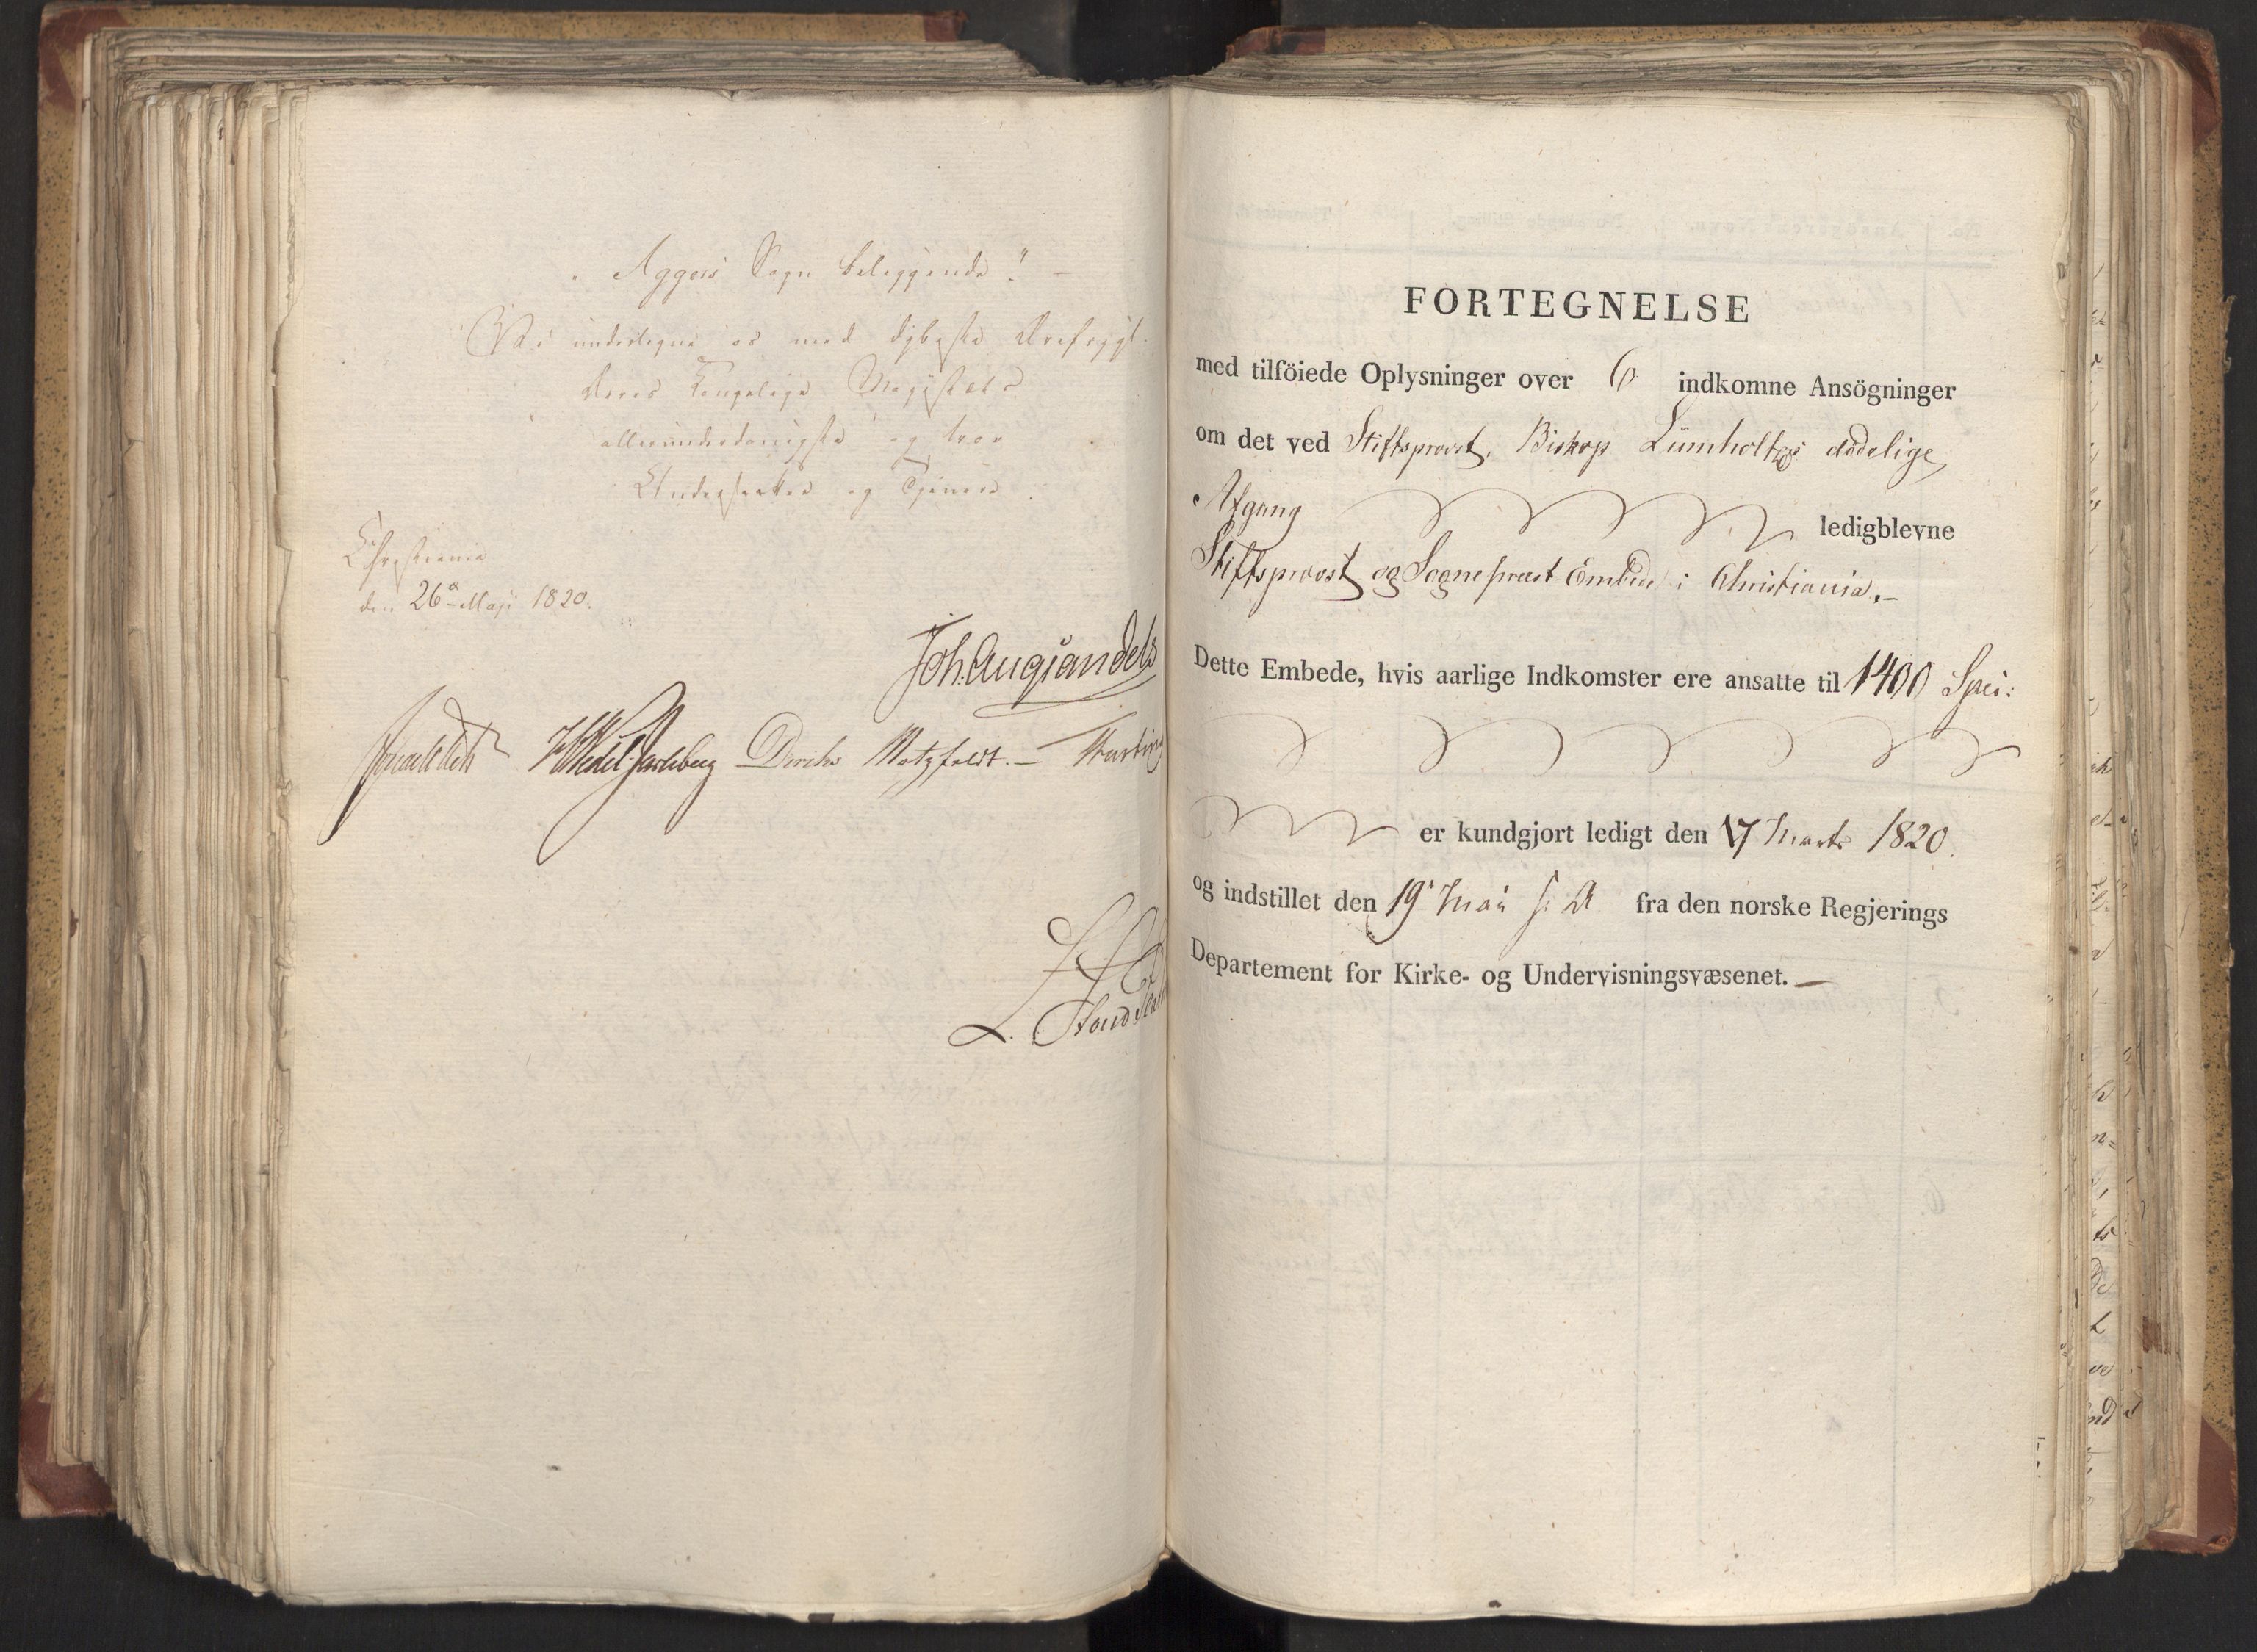 "Aggers Sogn beliggende". —
Vi undertegne os med dybeste Ærefrygt
Deres Kongelige Majestæts
allerunderdanigste og troe
Undersaatter og Tjenere.
Christiania
den 26de Maji 1820.
Joh. Aug Sandels
HWedel Jarlsberg Diriks Motzfeldt. —
L.
FORTEGNELSE
med tilföiede Oplysninger over 6 indkomne Ansögninger
om det ved Stiftsprovst, Biskop Lumholtzes dødelige
Afgang ledigblevne
Stiftsprovst og Sognepræst Embede i Christiania. —
Dette Embede, hvis aarlige Indkomster ere ansatte til 1400 Spec:
er kundgjort ledigt den 17 Marts 1820.
og indstillet den 19 Mai s. A fra den norske Regjerings
Departement for Kirke- og Undervisningsvæsenet. —